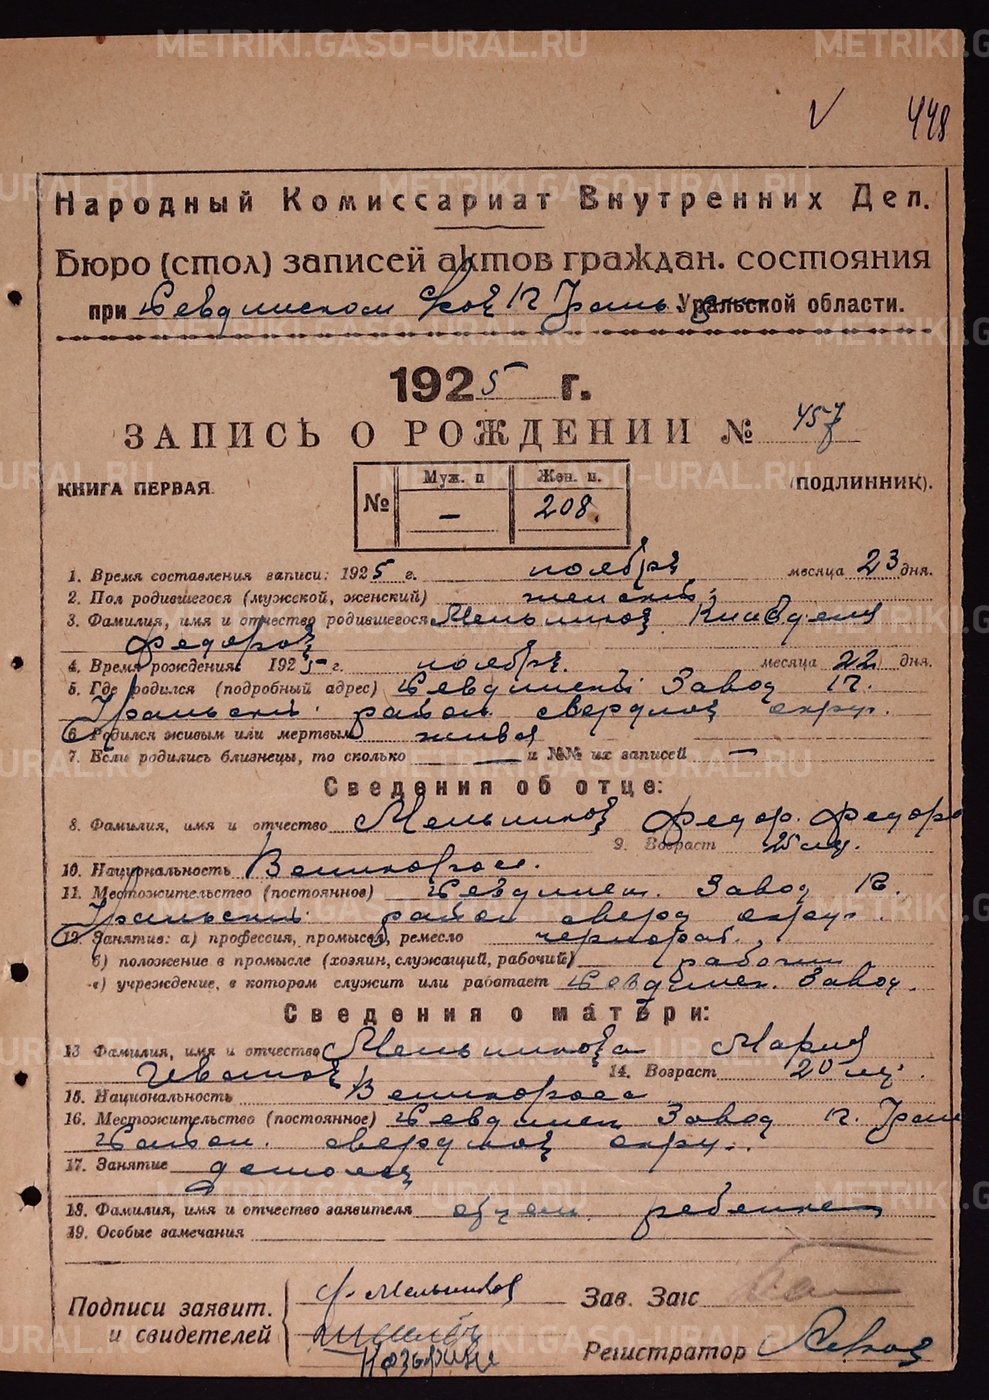 METRIKI.GASO-URAL.RU
448
Народный Комиссариат Внутренних Дел.
Бюро (стол) записей актов граждан. состояния
при Уральской области.
1925 г.
ЗАПИСЬ О РОЖДЕНИИ № 457
КНИГА ПЕРВАЯ. (ПОДЛИННИК).
№ Муж. п Жен. п.
— 208.
1. Время составления записи: 1925 г. ноября месяца 23 дня.
2. Пол родившегося (мужской, женский) женский.
3. Фамилия, имя и отчество родившегося Мельников
Федоров
4. Время рождения: 1925 г. ноября. месяца 22 дня.
5. Где родился (подробный адрес) Завод
Уральский район свердлов округ.
6. Родился живым или мертвым живая
7. Если родились близнецы, то сколько — и №№ их записей —
Сведения об отце:
8. Фамилия, имя и отчество Мельников Федор. Федоро
9. Возраст 25 лет.
10. Национальность Великоросс.
11. Местожительство (постоянное) Завод
Уральский район сверд округ.
12. Занятие: а) профессия, промысел, ремесло чернораб.
б) положение в промысле (хозяин, служащий, рабочий) рабочий
в) учреждение, в котором служит или работает Завод.
Сведения о матери:
13 Фамилия, имя и отчество Мельникова Мария
Иванов 14. Возраст 20 лет.
15. Национальность Великоросса
16. Местожительство (постоянное) Завод Урал
район. свердлов окру.
17. Занятие домохоз
18. Фамилия, имя и отчество заявителя отцом ребенка
19. Особые замечания
Подписи заявит.
и свидетелей
Ф. Мельников
Зав. Загс
Регистратор